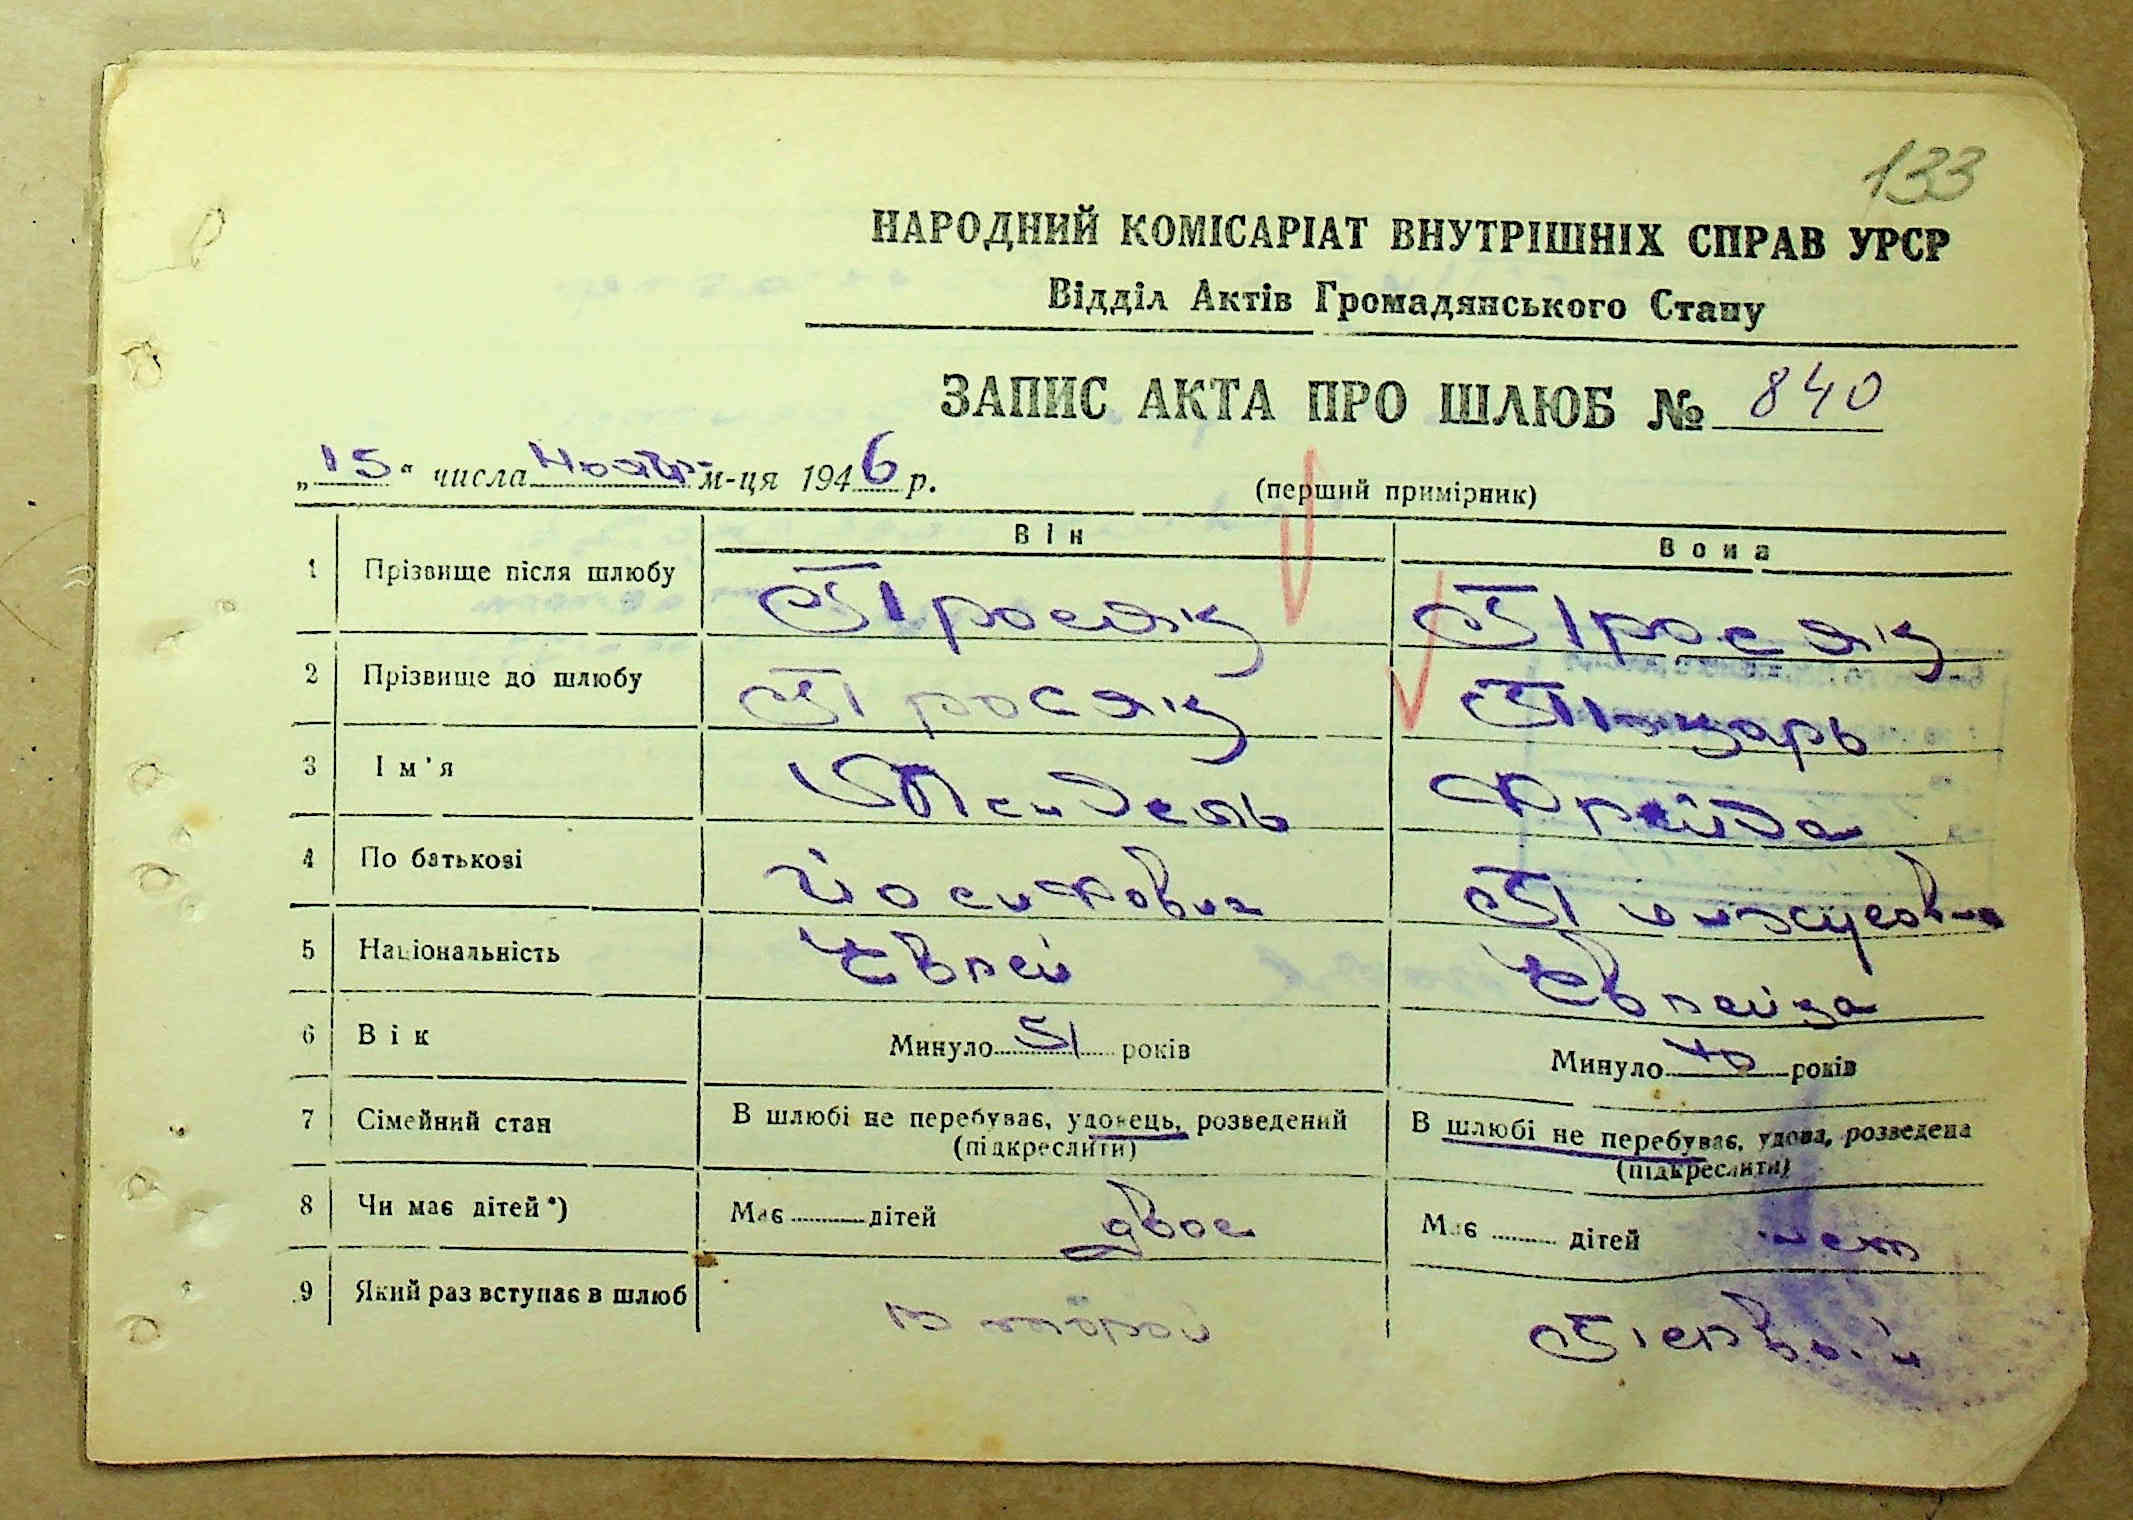 133
НАРОДНИЙ КОМІСАРІАТ ВНУТРІШНІХ СПРАВ УРСР
Відділ Актів Громадянського Стану
ЗАПИС АКТА ПРО ШЛЮБ № 840
„15“ числа нояб. м-ця 1946 р.
(перший примірник)
Він Вона
1 Прізвище після шлюбу Просяк Просяк
2 Прізвище до шлюбу Просяк
3 Ім'я Мендель Фрейда
4 По батькові Йосифович
5 Національність Еврей Еврейка
6 Вік Минуло 51 років Минуло 40 років
7 Сімейний стан В шлюбі не перебуває, удовець, розведений В шлюбі не перебуває, удова, розведена
(підкреслити) (підкреслити)
8 Чи має дітей*) Має дітей двое Має дітей нет
9 Який раз вступає в шлюб второй Первый